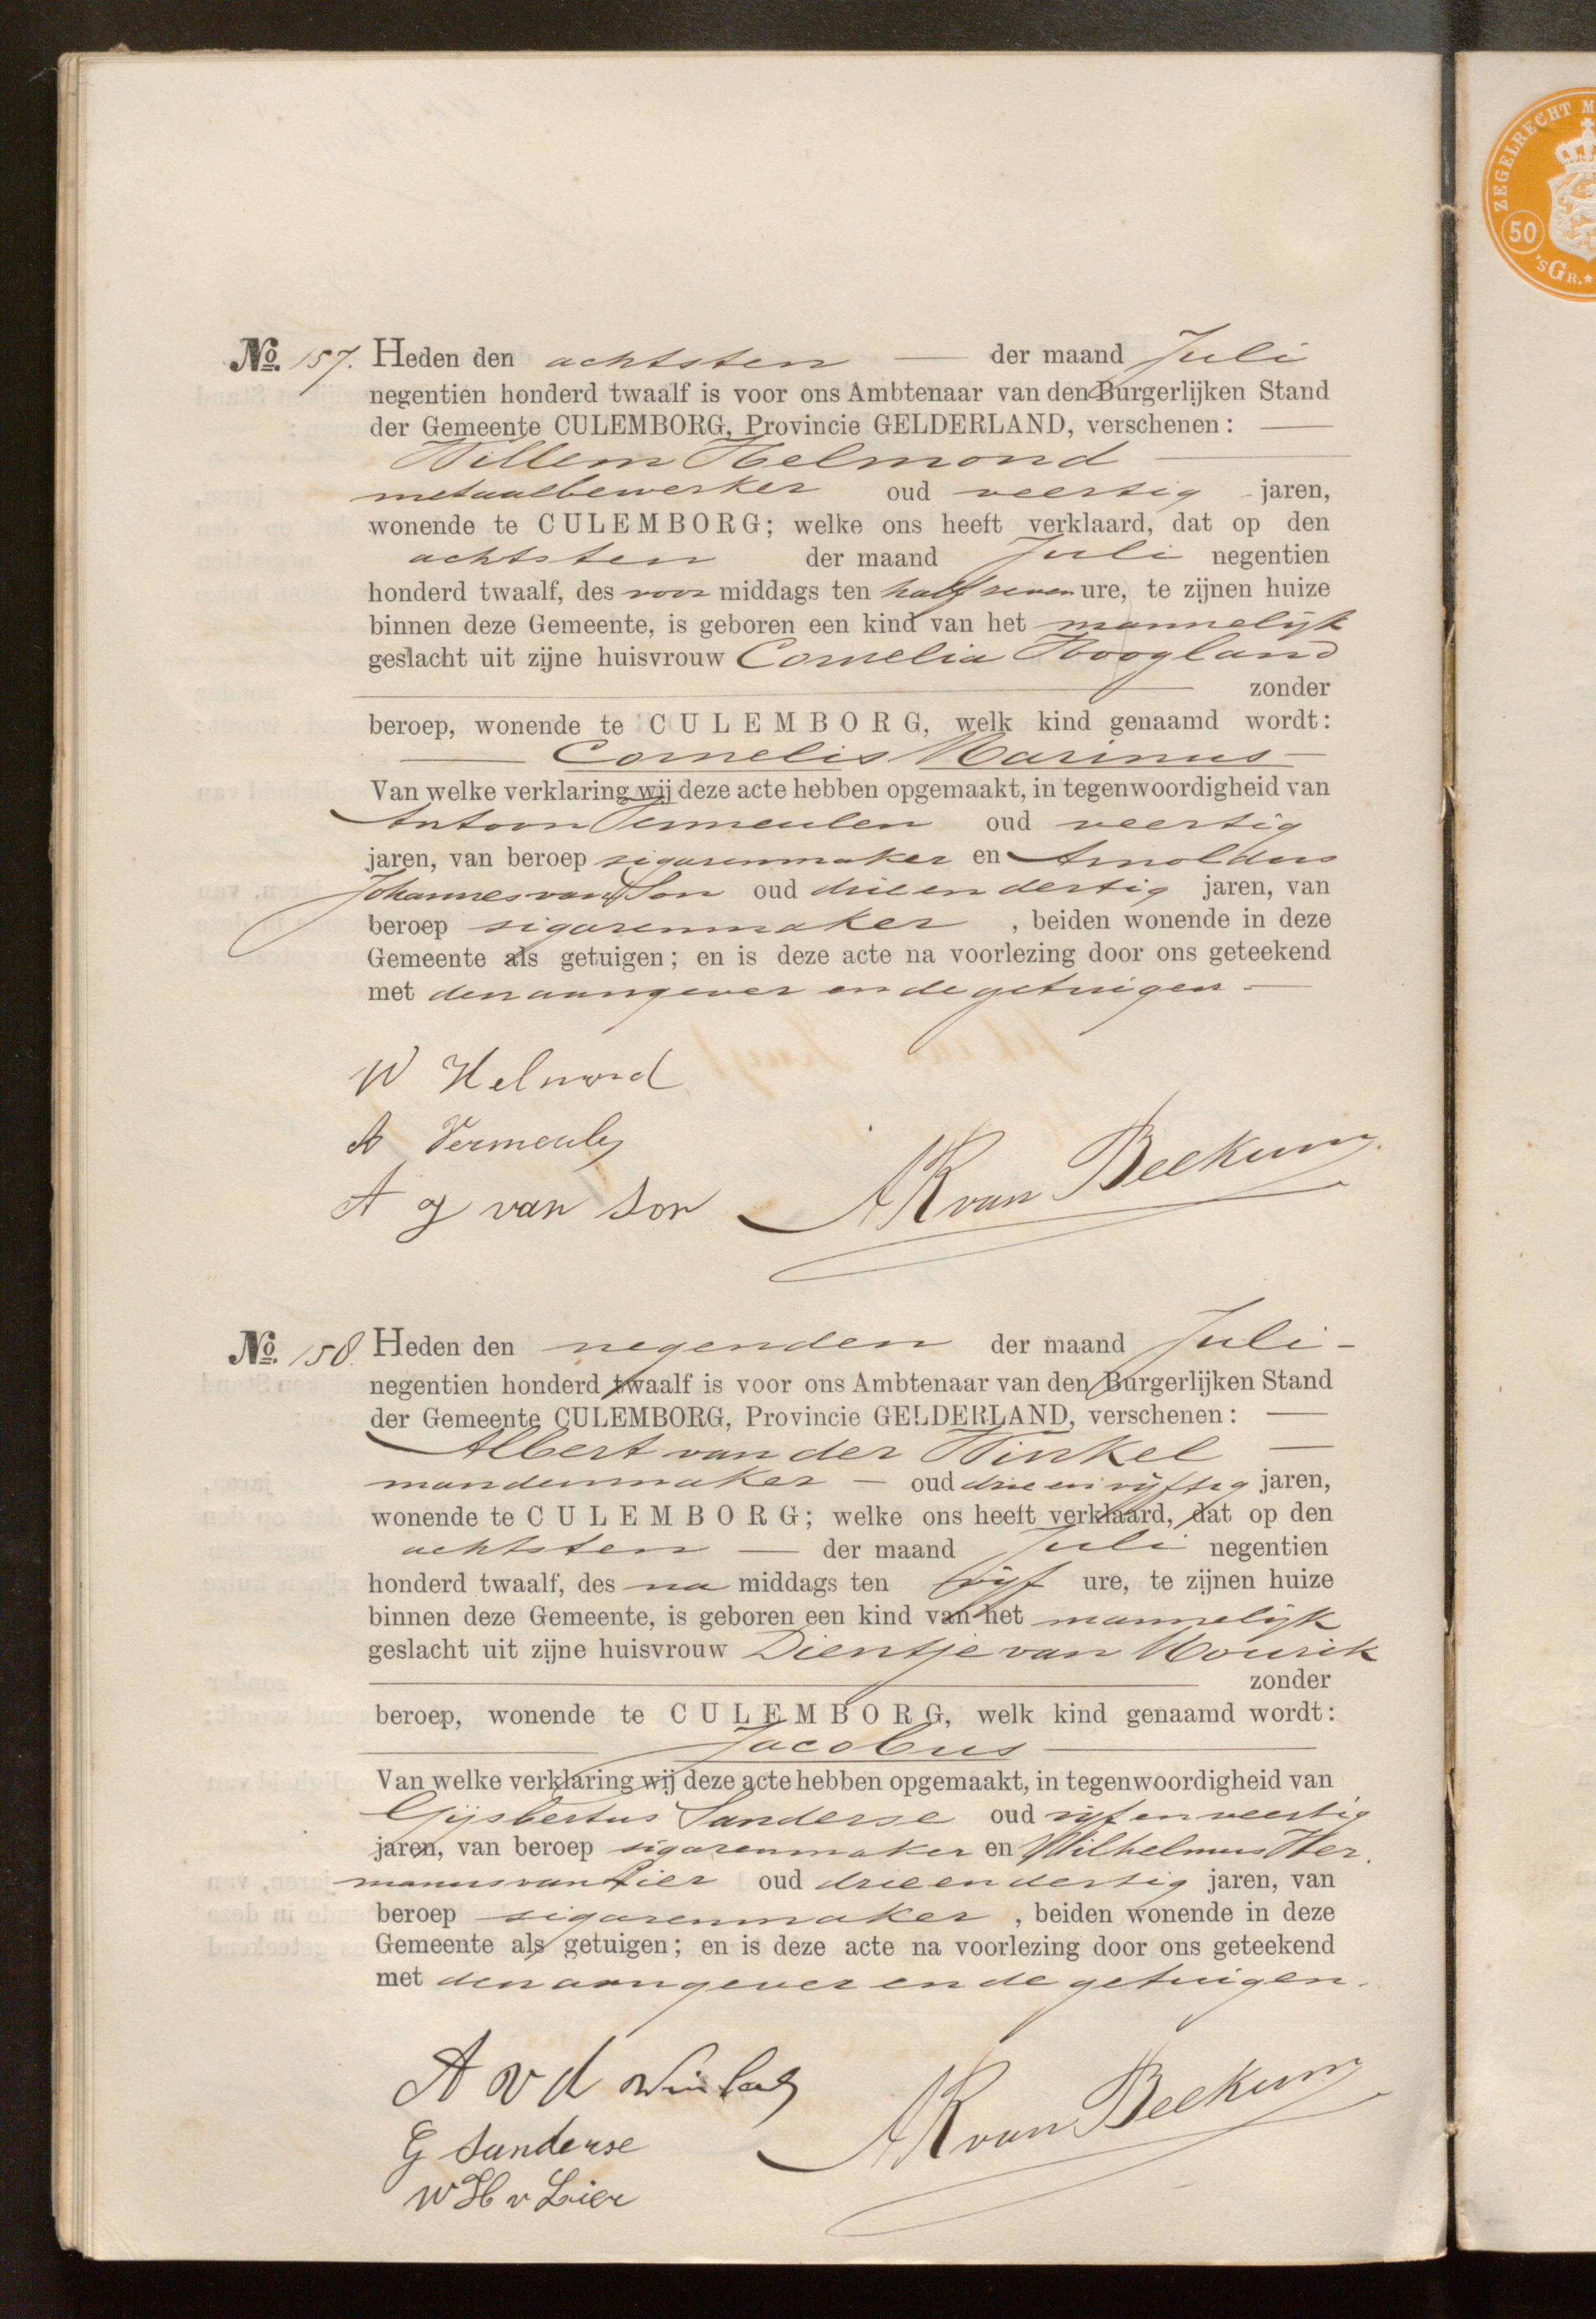 No. 157. Heden den achtsten der maand Juli
negentien honderd twaalf is voor ons Ambtenaar van den Burgerlijken Stand
der Gemeente CULEMBORG, Provincie GELDERLAND, verschenen:
Willem Helmond
metaalbewerker oud veertig jaren,
wonende te CULEMBORG; welke ons heeft verklaard, dat op den
achtsten der maand Juli negentien
honderd twaalf, des voor middags ten half zeven ure, te zijnen huize
binnen deze Gemeente, is geboren een kind van het mannelijk
geslacht uit zijne huisvrouw Cornelia Hoogland
zonder
beroep, wonende te CULEMBORG, welk kind genaamd wordt:
Cornelis Marinus
Van welke verklaring wij deze acte hebben opgemaakt, in tegenwoordigheid van
Antoon Vermeulen oud veertig
jaren, van beroep sigarenmaker en Arnoldus
Johannes van Son oud drie en dertig jaren, van
beroep sigarenmaker, beiden wonende in deze
Gemeente als getuigen; en is deze acte na voorlezing door ons geteekend
met den aangever en de getuigen
W Helmond
A Vermeulen
A J van Son AK van Beekum
No. 158. Heden den negenden der maand Juli
negentien honderd twaalf is voor ons Ambtenaar van den Burgerlijken Stand
der Gemeente CULEMBORG, Provincie GELDERLAND, verschenen:
Albert van der Winkel
mandenmaker oud drie en vijftig jaren,
wonende te CULEMBORG; welke ons heeft verklaard, dat op den
achtsten der maand Juli negentien
honderd twaalf, des na middags ten vijf ure, te zijnen huize
binnen deze Gemeente, is geboren een kind van het mannelijk
geslacht uit zijne huisvrouw Dientje van Mourik
zonder
beroep, wonende te CULEMBORG, welk kind genaamd wordt:
Jacobus
Van welke verklaring wij deze acte hebben opgemaakt, in tegenwoordigheid van
Gijsbertus Sanderse oud vijf en veertig
jaren, van beroep sigarenmaker en Wilhelmus Her
manus van Lier oud drie en dertig jaren, van
beroep sigarenmaker, beiden wonende in deze
Gemeente als getuigen; en is deze acte na voorlezing door ons geteekend
met den aangever en de getuigen.
A v d Winkel
G Sanderse AK van Beekum
W H v Lier
ZEGELRECHT
50
'sGR.